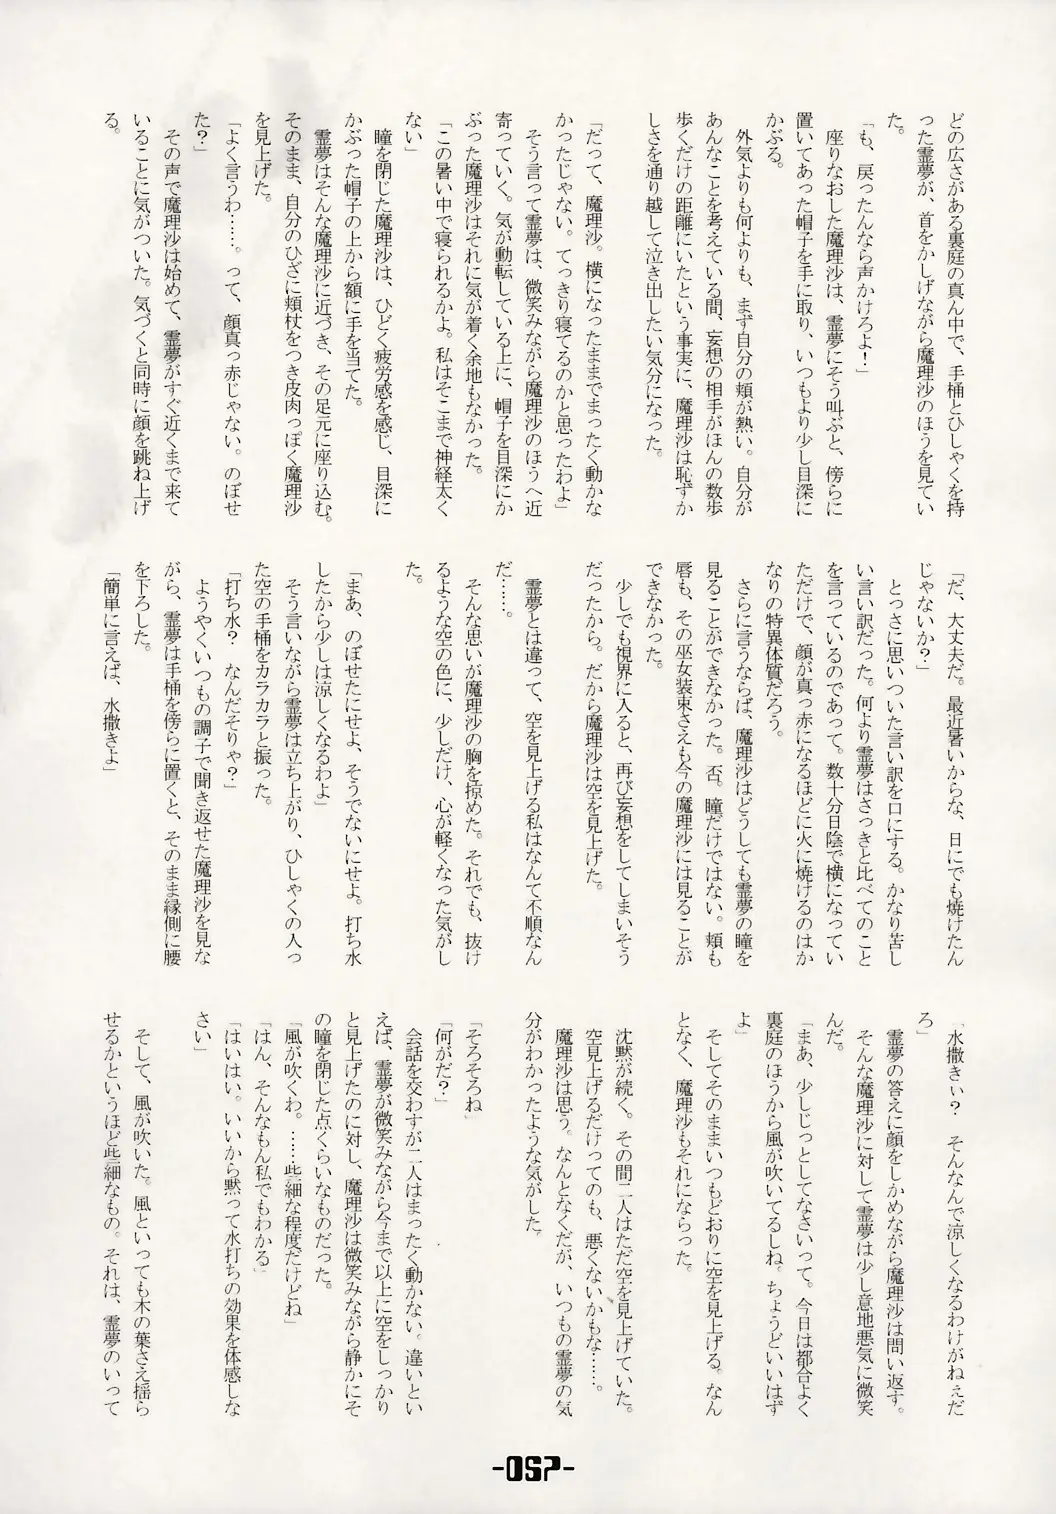 どの広さがある裏庭の真ん中で、手桶とひしゃくを持
った霊夢が、首をかしげながら魔理沙のほうを見てい
た。
「も、戻ったんなら声かけろよ！」
座りなおした魔理沙は、霊夢にそう叫ぶと、傍らに
置いてあった帽子を手に取り、いつもより少し目深に
かぶる。
外気よりも何よりも、まず自分の頬が熱い。自分が
あんなことを考えている間、妄想の相手がほんの数歩
歩くだけの距離にいたという事実に、魔理沙は恥ずか
しさを通り越して泣き出したい気分になった。
「だって、魔理沙。横になったままでまったく動かな
かったじゃない。てっきり寝てるのかと思ったわよ」
そう言って霊夢は、微笑みながら魔理沙のほうへ近
寄っていく。気が動転している上に、帽子を目深にか
ぶった魔理沙はそれに気が着く余地もなかった。
「この暑い中で寝られるかよ。私はそこまで神経太く
ない」
瞳を閉じた魔理沙は、ひどく疲労感を感じ、目深に
かぶった帽子の上から額に手を当てた。
霊夢はそんな魔理沙に近づき、その足元に座り込む。
そのまま、自分のひざに頬杖をつき皮肉っぽく魔理沙
を見上げた。
「よく言うわ……。って、顔真っ赤じゃない。のぼせ
た？」
その声で魔理沙は始めて、霊夢がすぐ近くまで来て
いることに気がついた。気づくと同時に顔を跳ね上げ
る。
「だ、大丈夫だ。最近暑いからな、日にでも焼けたん
じゃないか？」
とっさに思いついた言い訳を口にする。かなり苦し
い言い訳だった。何より霊夢はさっきと比べてのこと
を言っているのであって。数十分日陰で横になってい
ただけで、顔が真っ赤になるほどに火に焼けるのはか
なりの特異体質だろう。
さらに言うならば、魔理沙はどうしても霊夢の瞳を
見ることができなかった。否。瞳だけではない。頬も
唇も、その巫女装束さえも今の魔理沙には見ることが
できなかった。
少しでも視界に入ると、再び妄想をしてしまいそう
だったから。だから魔理沙は空を見上げた。
霊夢とは違って、空を見上げる私はなんて不順なん
だ……。
そんな思いが魔理沙の胸を掠めた。それでも、抜け
るような空の色に、少しだけ、心が軽くなった気がし
た。
「まあ、のぼせたにせよ、そうでないにせよ。打ち水
したから少しは涼しくなるわよ」
そう言いながら霊夢は立ち上がり、ひしゃくの入っ
た空の手桶をカラカラと振った。
「打ち水？　なんだそりゃ？」
ようやくいつもの調子で聞き返せた魔理沙を見な
がら、霊夢は手桶を傍らに置くと、そのまま縁側に腰
を下ろした。
「簡単に言えば、水撒きよ」
「水撒きぃ？　そんなんで涼しくなるわけがねぇだ
ろ」
霊夢の答えに顔をしかめながら魔理沙は問い返す。
そんな魔理沙に対して霊夢は少し意地悪気に微笑
んだ。
「まあ、少しじっとしてなさいって。今日は都合よく
裏庭のほうから風が吹いてるしね。ちょうどいいはず
よ」
そしてそのままいつもどおりに空を見上げる。なん
となく、魔理沙もそれにならった。
沈黙が続く。その間二人はただ空を見上げていた。
空見上げるだけってのも、悪くないかもな……。
魔理沙は思う。なんとなくだが、いつもの霊夢の気
分がわかったような気がした。
「そろそろね」
「何がだ？」
会話を交わすが二人はまったく動かない。違いとい
えば、霊夢が微笑みながら今まで以上に空をしっかり
と見上げたのに対し、魔理沙は微笑みながら静かにそ
の瞳を閉じた点くらいなものだった。
「風が吹くわ。……些細な程度だけどね」
「はん、そんなもん私でもわかる」
「はいはい。いいから黙って水打ちの効果を体感しな
さい」
そして、風が吹いた。風といっても木の葉さえ揺ら
せるかというほど些細なもの。それは、霊夢のいって
-057-